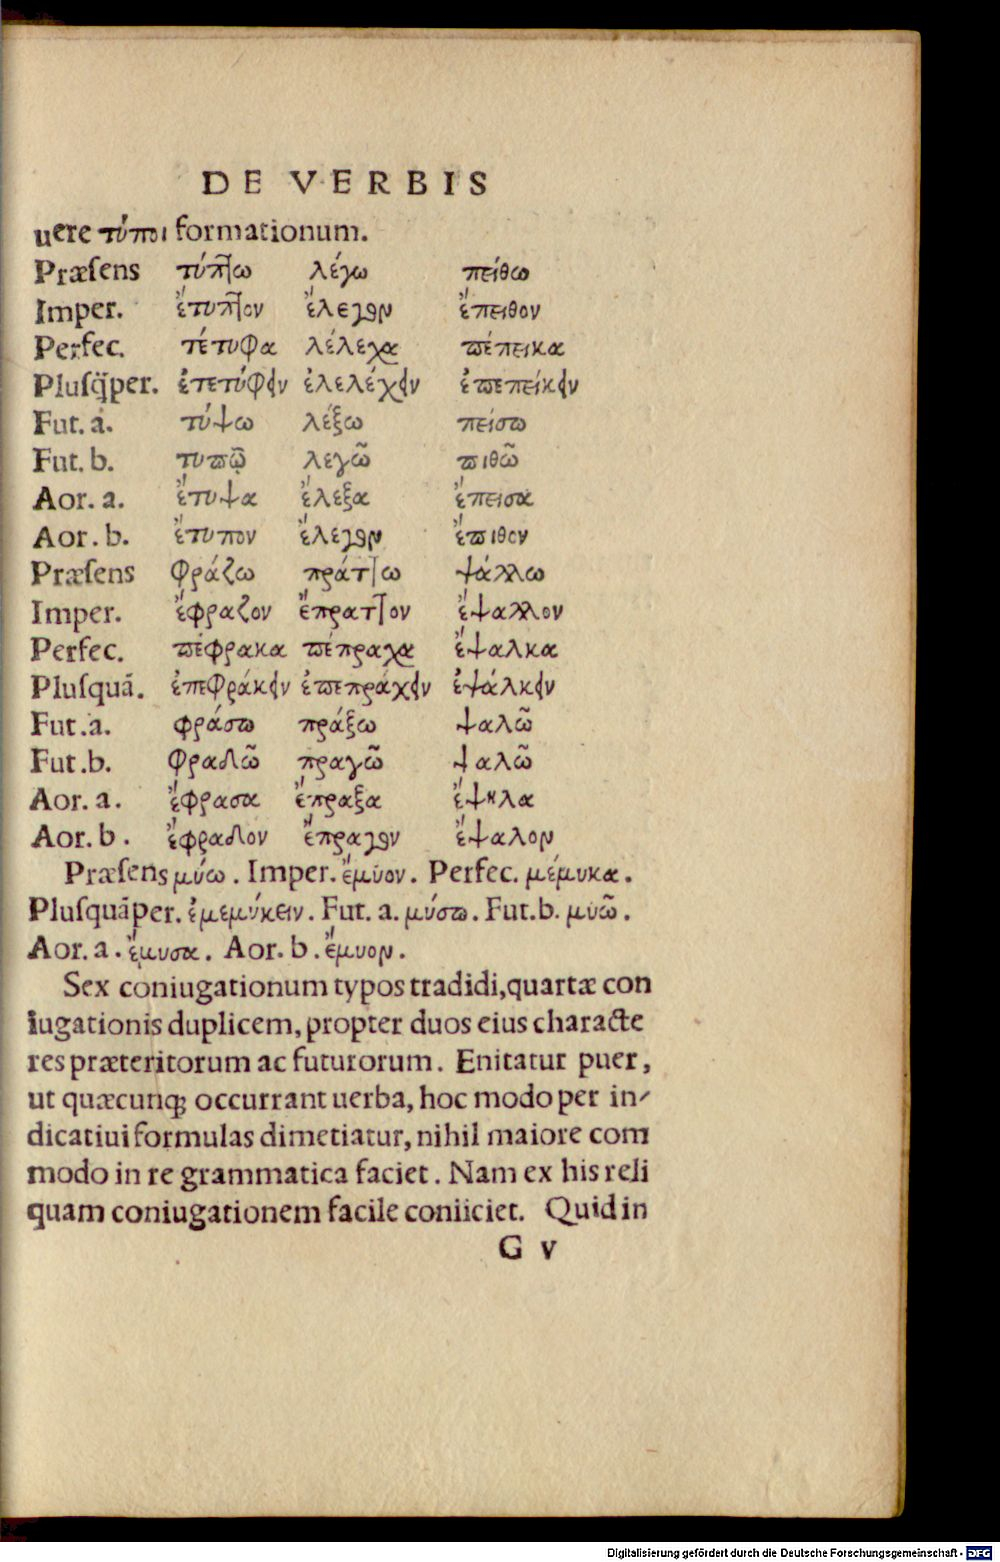 DE VERBIS
uere τύποι formationum.
Præsens τύπτω λέγω πείθω
Imper. ἔτυπτον ἔλεγον ἔπειθον
Perfec. τέτυφα λέλεχα πέπεικα
Plusq̃per. ἐτετύφειν ἐλελέχειν ἐπεπείκειν
Fut. a. τύψω λέξω πείσω
Fut. b. τυπῶ λεγῶ πιθῶ
Aor. a. ἔτυψα ἔλεξα ἔπεισα
Aor. b. ἔτυπον ἔλεγον ἔπιθον
Præsens φράζω πράττω ψάλλω
Imper. ἔφραζον ἔπραττον ἔψαλλον
Perfec. πέφρακα πέπραχα ἔψαλκα
Plusquã. ἐπεφράκειν ἐπεπράχειν ἐψάλκειν
Fut. a. φράσω πράξω ψαλῶ
Fut. b. φραδῶ πραγῶ ψαλῶ
Aor. a. ἔφρασα ἔπραξα ἔψηλα
Aor. b. ἔφραδον ἔπραγον ἔψαλον
Præsens μύω. Imper. ἔμυον. Perfec. μέμυκα.
Plusquãper. ἐμεμύκειν. Fut. a. μύσω. Fut. b. μυῶ.
Aor. a. ἔμυσα. Aor. b. ἔμυον.
Sex coniugationum typos tradidi, quartæ con
iugationis duplicem, propter duos eius characte
res præteritorum ac futurorum. Enitatur puer,
ut quæcunq; occurrant uerba, hoc modo per in-
dicatiui formulas dimetiatur, nihil maiore com
modo in re grammatica faciet. Nam ex his reli
quam coniugationem facile coniiciet. Quid in
G v
Digitalisierung gefördert durch die Deutsche Forschungsgemeinschaft - DFG